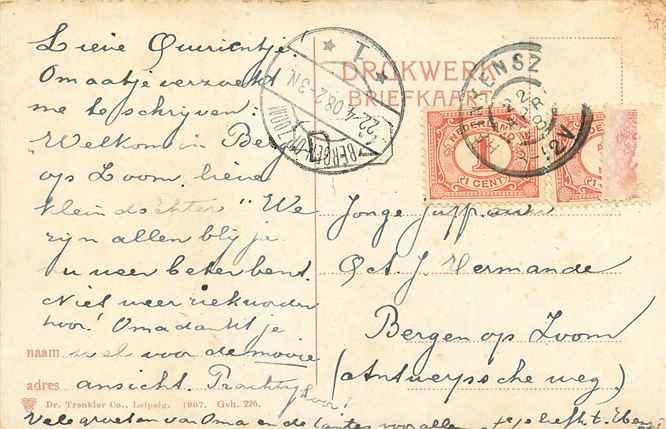 Lieve Quirientje,
Omaatje verzoekt
me te schrijven:
"Welkom in Berg
op Zoom, lieve
kleindochter" We
zijn allen blij je
nu weer beter bent.
Niet weer ziek worden
hoor! Oma dankt je
wel voor de mooie
ansicht. Prachtig hoor!
Vele groeten van Oma en de tantes vooral
naam
adres
Dr. Trenkler Co., Leipzig. 1907. Gvh. 226.
DRUKWERK
BRIEFKAART
T
BERGEN OP ZOOM
22.4.08 2-3N
NEDERLAND
1
1 CENT
Jonge juffrouw
Qct. J. Hermande
Bergen op Zoom
(Antwerpsche weg)